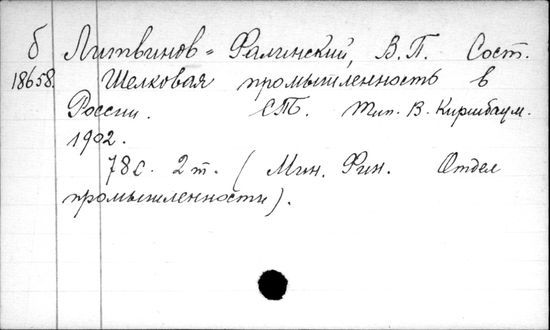 б Литвинов-Фалинский, В.П. Сост.
18658. Шелковая промышленность в
России. СПб. Тип. В. Киршбаум.
1902.
78 с. 2 т. (Мин. Фин. Отдел
промышленности).